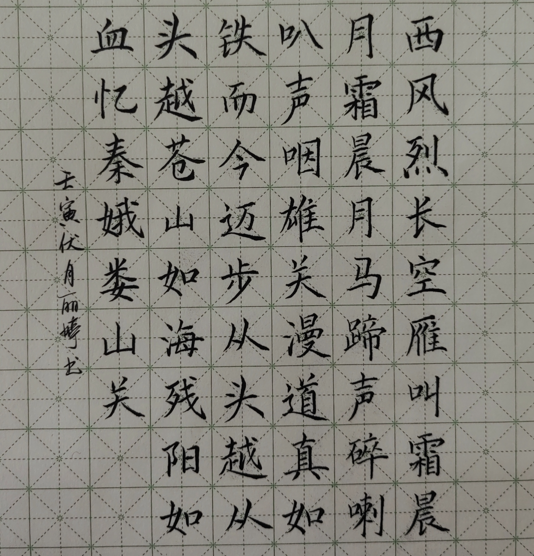 西风烈长空雁叫霜晨
月霜晨月马蹄声碎喇
叭声咽雄关漫道真如
铁而今迈步从头越从
头越苍山如海残阳如
血忆秦娥娄山关
壬寅伏月丽娉书